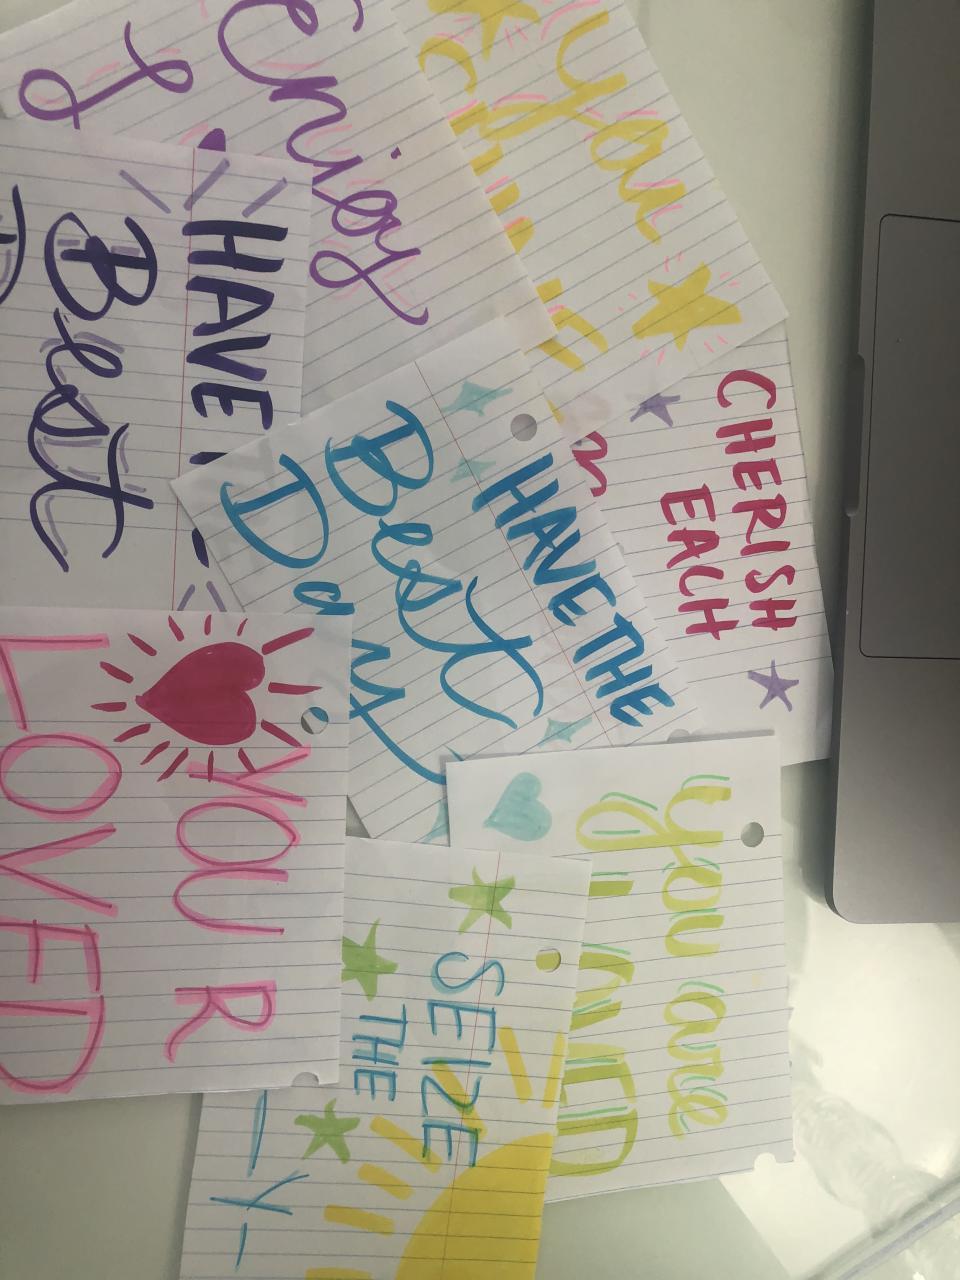 You
CHERISH
EACH
Enjoy
HAVE THE
Best
Day
HAVE
Best
you are
SEIZE
THE
YOU R
LOVED